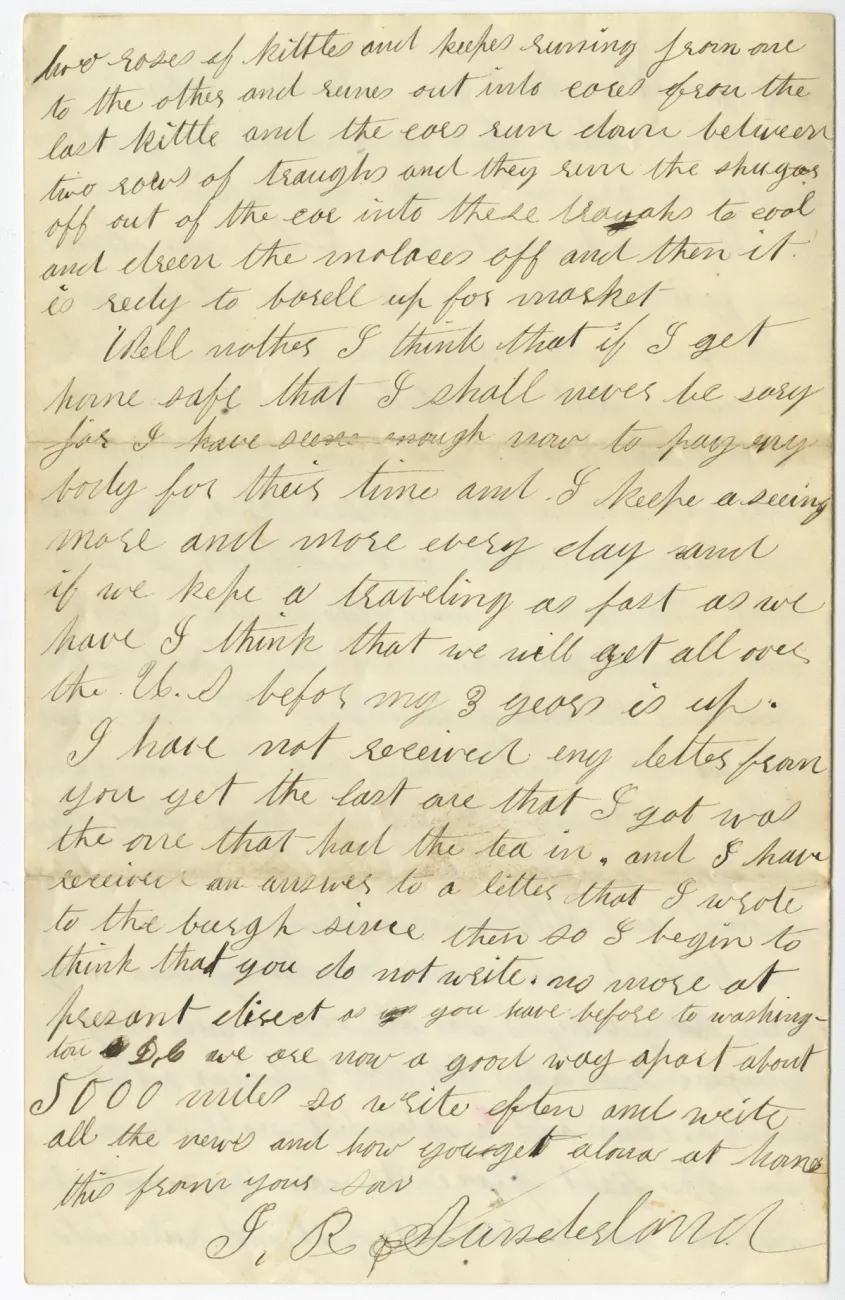 two roses of kittles and keepes runing from one
to the other and runes out into cores from the
last kittle and the cores run down between
two rows of traughs and they run the shugar
off out of the cor into these traughs to cool
and dreen the molaces off and then it
is redy to borell up for market
Well mother I think that if I get
home safe that I shall never be sory
for I have seene enough now to pay eny
body for their time and I keepe a seeing
more and more every day and
if we kepe a traveling as fast as we
have I think that we will get all over
the U.S befor my 3 years is up.
I have not received eny letter from
you yet the last one that I got was
the one that had the tea in. and I have
received an answer to a letter that I wrote
to the burgh since then so I begin to
think that you do not write. no more at
presant direct as you have before to washing-
ton D,C we are now a good way apart about
5000 miles so write often and write
all the news and how you get along at home
this from your son
J, R, Sunderland